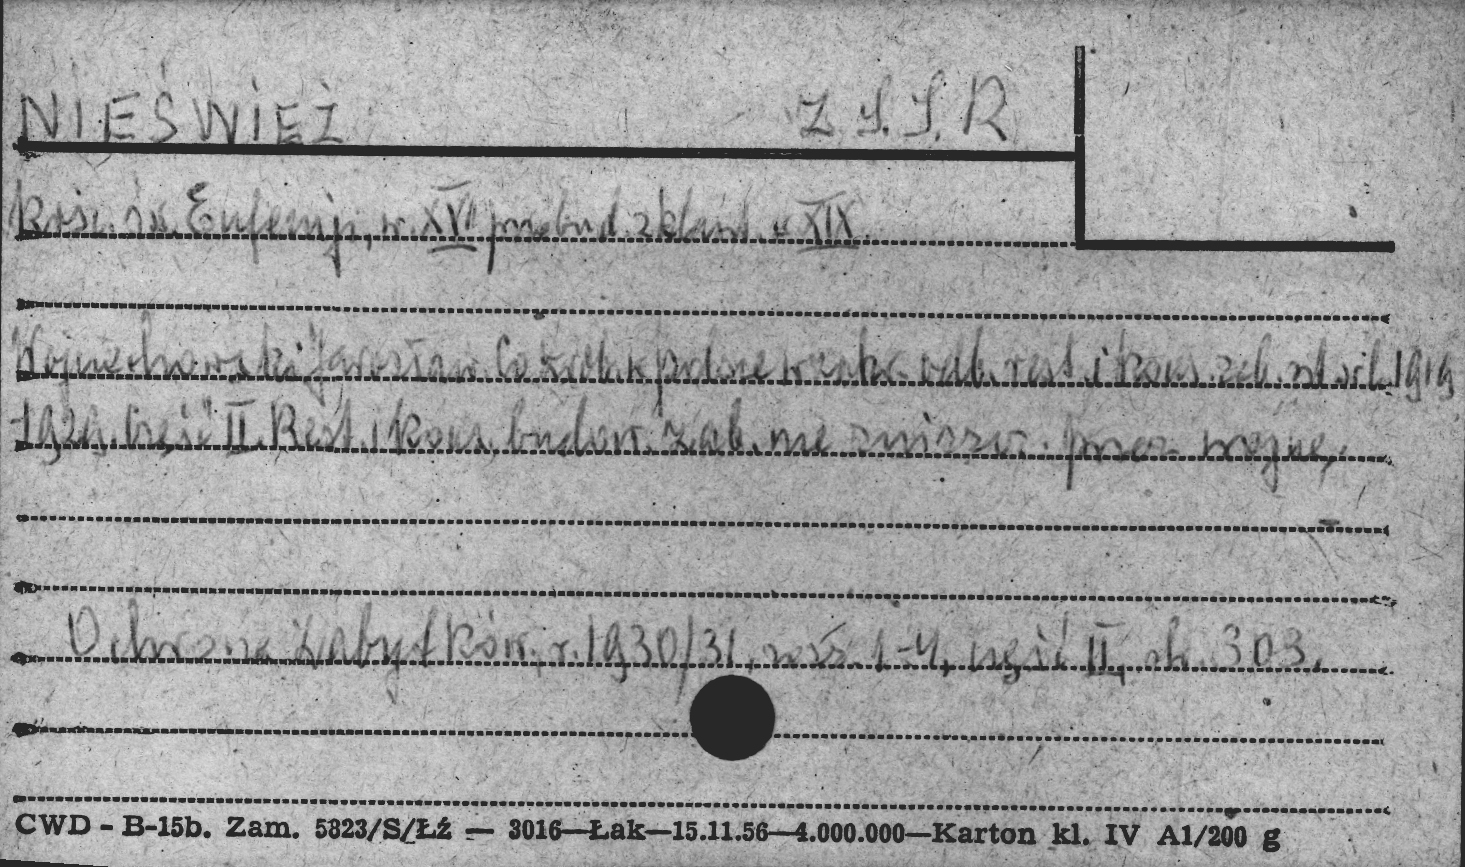 NIEŚWIEŻ Z.S.S.R
Kośc. św. Eufemji, w. XVI przebud. z końc. w XIX.
Wojciechowski Jarosław. rest. i kons. zab. 1919
-1929. Część II. Rest. i kons. budow. zab. nie zniszcz. przez wojnę,
Ochrona Zabytków. r. 1930/31, zesz. 1-4, część II, str. 303.
CWD - B-15b. Zam. 5823/S/Łź — 3016—Łak—15.11.56—4.000.000—Karton kl. IV A1/200 g